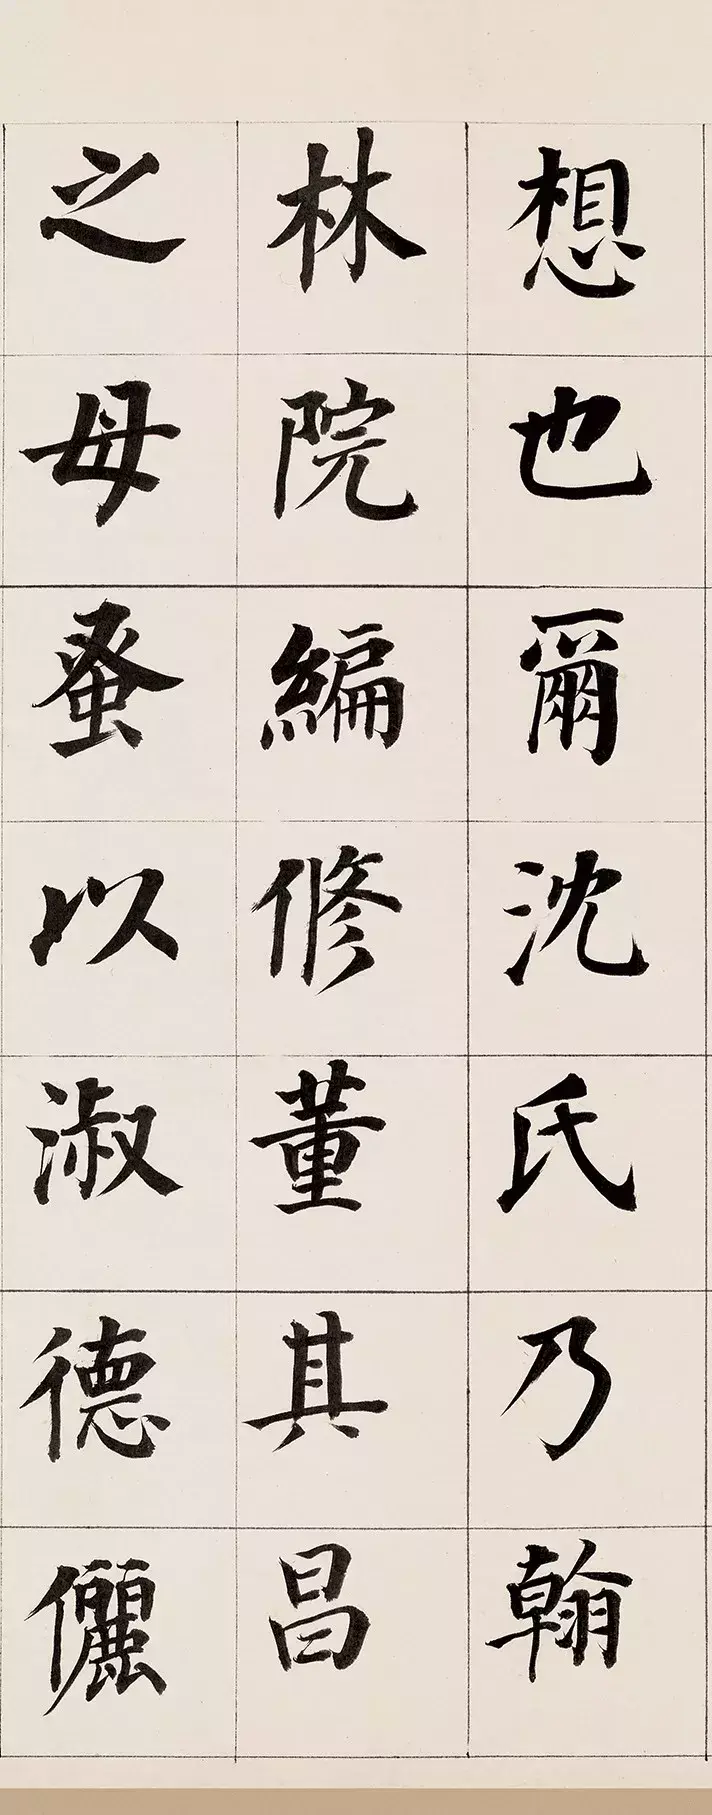 想也爾沈氏乃翰
林院編修董其昌
之母蚤以淑德儷